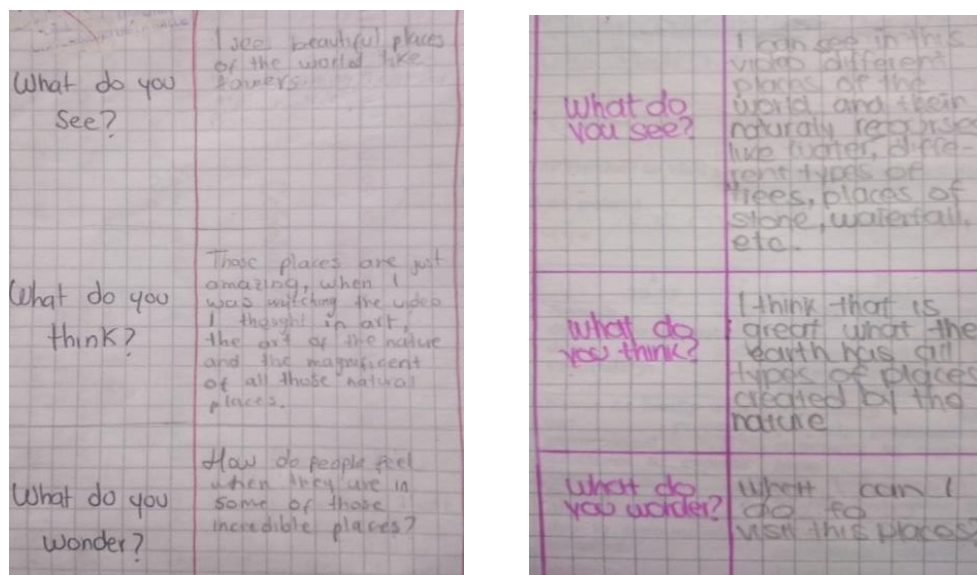 What do you
See?
I see beautiful places
of the world like
towers.
What do you
think?
Those places are just
amazing, when I
was watching the video
I thought in art,
the art of the nature
and the magnificent
of all those natural
places.
What do you
wonder?
How do people feel
when they are in
some of those
incredible places?
What do
you see?
I can see in this
video different
places of the
world and their
naturaly recourse
like water, diffe-
rent types of
trees, places of
stone, waterfall,
etc.
What do
you think?
I think that is
great what the
earth has all
types of places
created by the
nature
What do
you wonder?
What can I
do to
visit this places?